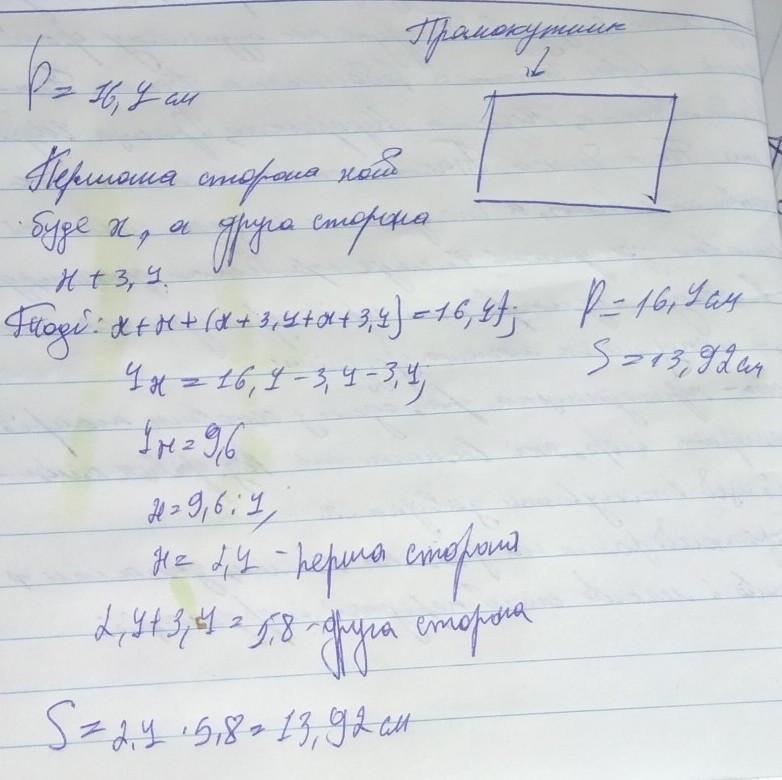 Прямокутник
P = 16,4 см
Першона сторона хай
буде х, а друга сторона
х + 3,4.
Тоді: х+х+(х+3,4+х+3,4)=16,4;
P = 16,4 см
4х = 16,4 - 3,4 - 3,4;
S = 13,92 см
4х = 9,6
х = 9,6 : 4;
х = 2,4 - перша сторона
2,4 + 3,4 = 5,8 - друга сторона
S = 2,4 · 5,8 = 13,92 см